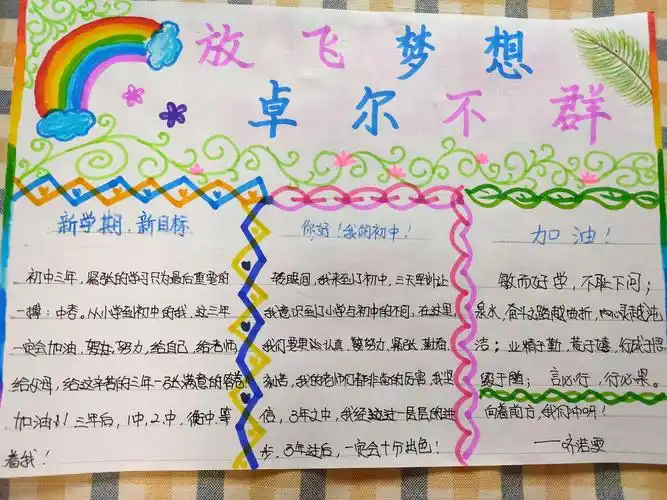 放飞梦想
卓尔不群
新学期,新目标
初中三年,紧张的学习只为最后重要的
一搏:中考。从小学到初中的我,这三年
一定会加油,努力,努力,给自己,给老师,
给父母,给这辛苦的三年一张满意的答卷
加油!三年后,1中,2中,衡中,等
着我!
你好!我的初中!
转眼间,我来到了初中,三天军训让
我意识到了小学与初中的不同,在这里,
我们要更认真,努力,紧张,勤奋,
我的老师们都非常的厉害,我坚
信,3年之中,我经过一层层的进
步,3年过后,一定会十分出色!
加油!
敏而好学,不耻下问;
泉水,奋斗之路越曲折,心灵越纯
洁;业精于勤,荒于嬉,行成于思
毁于随;言必行,行必果。
向着前方,我们冲啊!
——齐浩雯